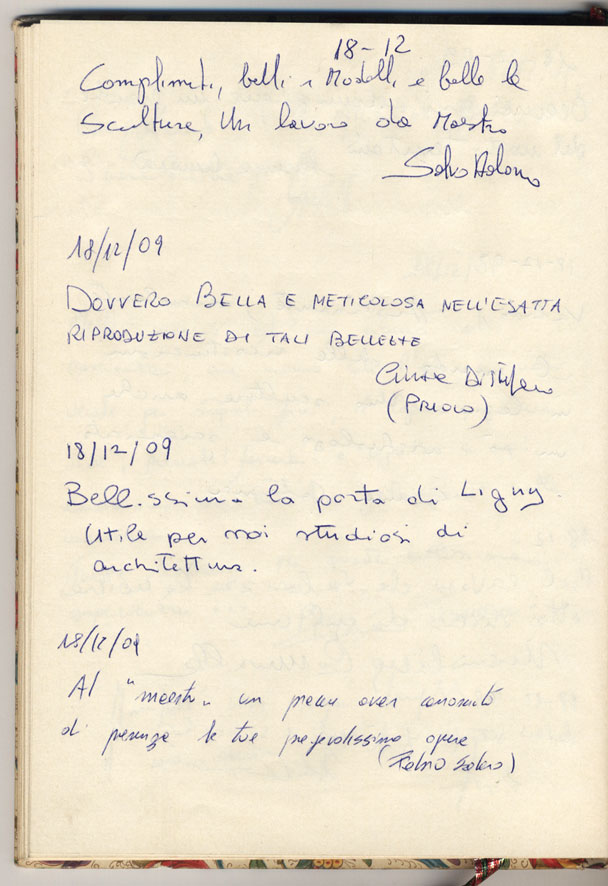 18-12
Complimenti, belli i Modelli e belle le
Sculture, Un lavoro da Maestro
Salvo Adorno
18/12/09
DOVVERO BELLA E METICOLOSA NELL'ESATTA
RIPRODUZIONE DI TALI BELLEZZE
Di Stefano
(PRIOLO)
18/12/09
Bellissima la porta di Ligny.
Utile per noi studiosi di
architettura.
18/12/09
Al "maestro" un piacere aver conosciuto
di presenza le tue pregevolissime opere
(Fabio